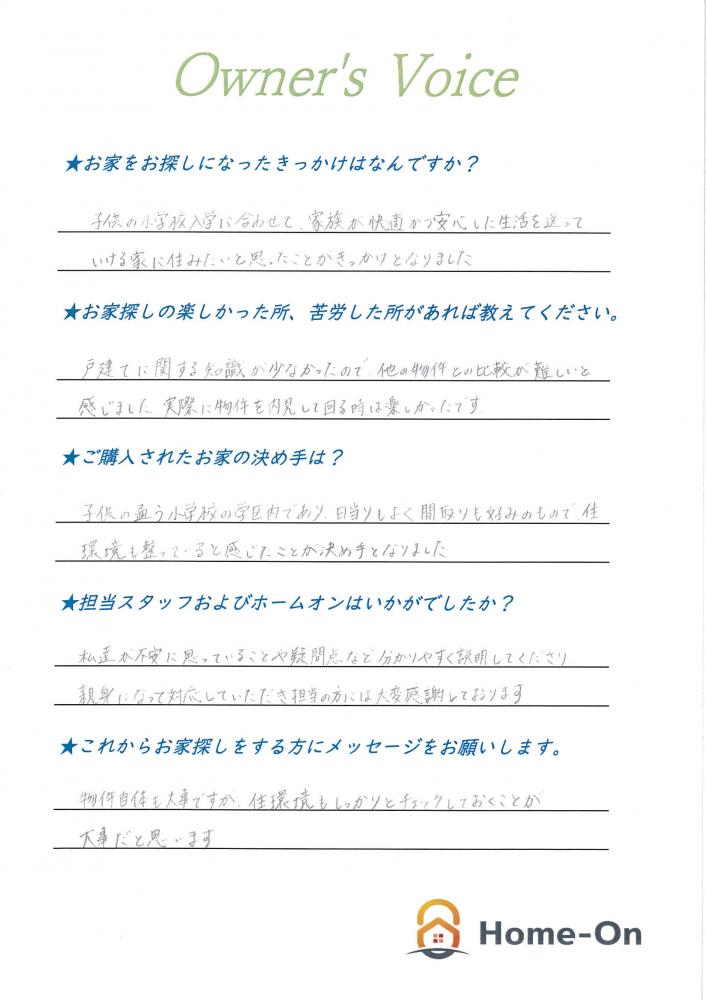 Owner's Voice
★お家をお探しになったきっかけはなんですか？
子供の小学校入学に合わせて、家族が快適かつ安心した生活を送って
いける家に住みたいと思ったことがきっかけとなりました
★お家探しの楽しかった所、苦労した所があれば教えてください。
戸建てに関する知識が少なかったので、他の物件との比較が難しいと
感じました。実際に物件を内見して回る時は楽しかったです。
★ご購入されたお家の決め手は？
子供の通う小学校の学区内であり、日当りもよく間取りも好みのもので、住
環境も整っていると感じたことが決め手となりました
★担当スタッフおよびホームオンはいかがでしたか？
私達が不安に思っていることや疑問点など分かりやすく説明してくださり
親身になって対応していただき担当の方には大変感謝しております
★これからお家探しをする方にメッセージをお願いします。
物件自体も大事ですが、住環境もしっかりとチェックしておくことが
大事だと思います
Home-On